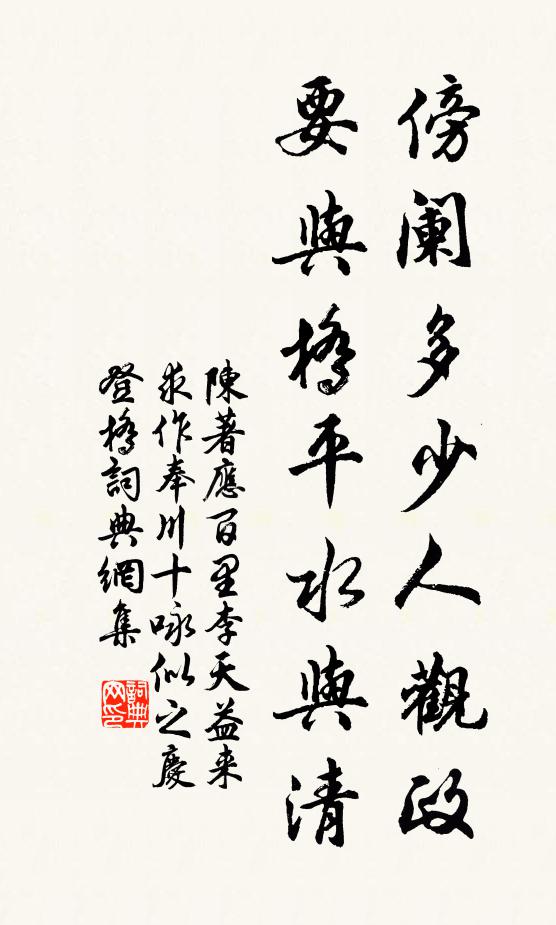 傍闌多少人觀政
要與橋平水與清
陳著應百里李天益来
求作奉川十咏似之慶
登橋詞典網集
詞典
网印